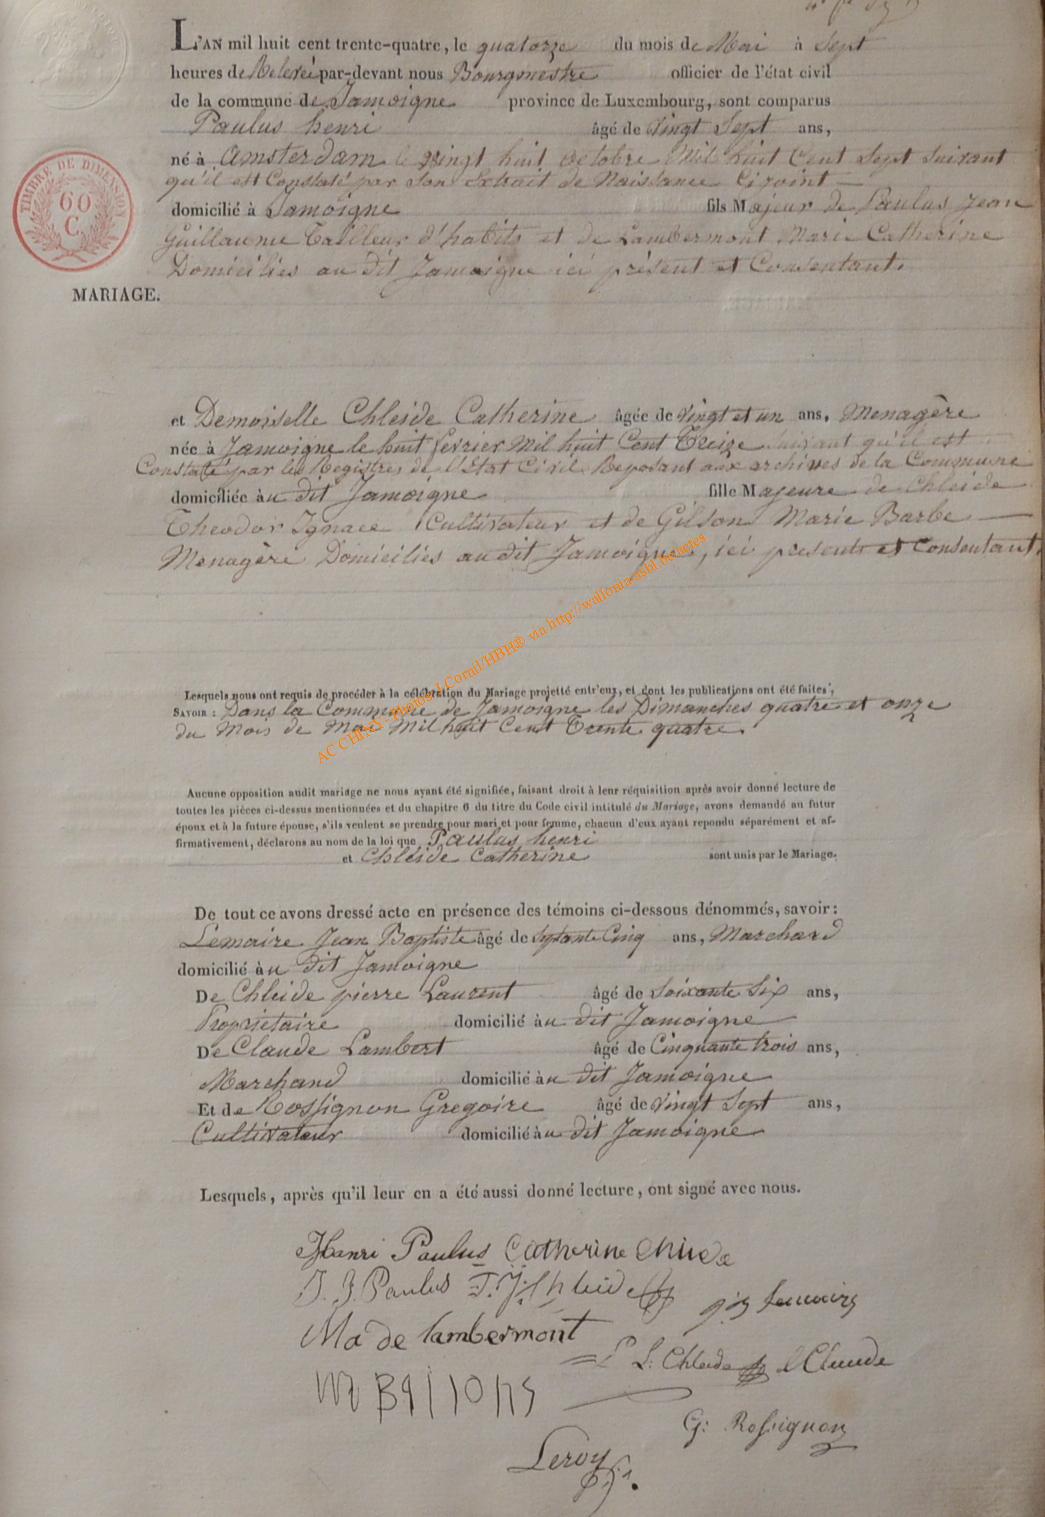 L'AN mil huit cent trente-quatre, le quatorze du mois de Mai à Sept
heures de Relevée par-devant nous Bourgmestre officier de l'état civil
de la commune de Jamoigne province de Luxembourg, sont comparus
Paulus henri âgé de Vingt Sept ans,
né à Amsterdam le vingt huit octobre Mil huit Cent Sept suivant
qu'il est Constaté par Son Extrait de Naissance Cijoint
TIMBRE DE DIMENSION
60
C.
domicilié à Jamoigne fils Majeur de Paulus Jean
Guillaume Tailleur d'habits et de Lambermont Marie Catherine
Domiciliés au dit Jamoigne ici présent et Consentant.
MARIAGE.
et Demoiselle Chleide Catherine âgée de Vingt et un ans, Menagère
née à Jamoigne le huit fevrier Mil huit Cent Treize suivant qu'il est
Constaté par les Registres de l'Etat Civil Reposant aux archives de la Commune
domiciliée au dit Jamoigne fille Majeure de Chleide
Theodor Ignace Cultivateur et de Gilson Marie Barbe
Menagère Domiciliés au dit Jamoigne, ici presents et Consentant.
Lesquels nous ont requis de procéder à la célébration du Mariage projetté entr'eux, et dont les publications ont été faites,
SAVOIR : Dans la Commune de Jamoigne les Dimanches quatre et onze
du Mois de Mai Mil huit Cent Trente quatre.
AC CHINY- Photos J.Cornil/HBH® via http://wallonia-asbl.be/actes
Aucune opposition audit mariage ne nous ayant été signifiée, faisant droit à leur réquisition après avoir donné lecture de
toutes les pièces ci-dessus mentionnées et du chapitre 6 du titre du Code civil intitulé du Mariage, avons demandé au futur
époux et à la future épouse, s'ils veulent se prendre pour mari et pour femme, chacun d'eux ayant repondu séparément et af-
firmativement, déclarons au nom de la loi que Paulus henri
et Chleide Catherine sont unis par le Mariage.
De tout ce avons dressé acte en présence des témoins ci-dessous dénommés, savoir :
Lemaire Jean Baptiste âgé de Septante Cinq ans, Marchard
domicilié au dit Jamoigne
De Chleide pierre Laurent âgé de Soixante Six ans,
Proprietaire domicilié au dit Jamoigne
De Claude Lambert âgé de Cinquante trois ans,
Marchand domicilié au dit Jamoigne
Et de Rossignon Gregoire âgé de Vingt Sept ans,
Cultivateur domicilié au dit Jamoigne
Lesquels, après qu'il leur en a été aussi donné lecture, ont signé avec nous.
Henri Paulus Catherine
J. J. Paulus T. J. Chleide
Ma de Lambermont
P L: Chleide l Claude
G: Rossignon
Leroy